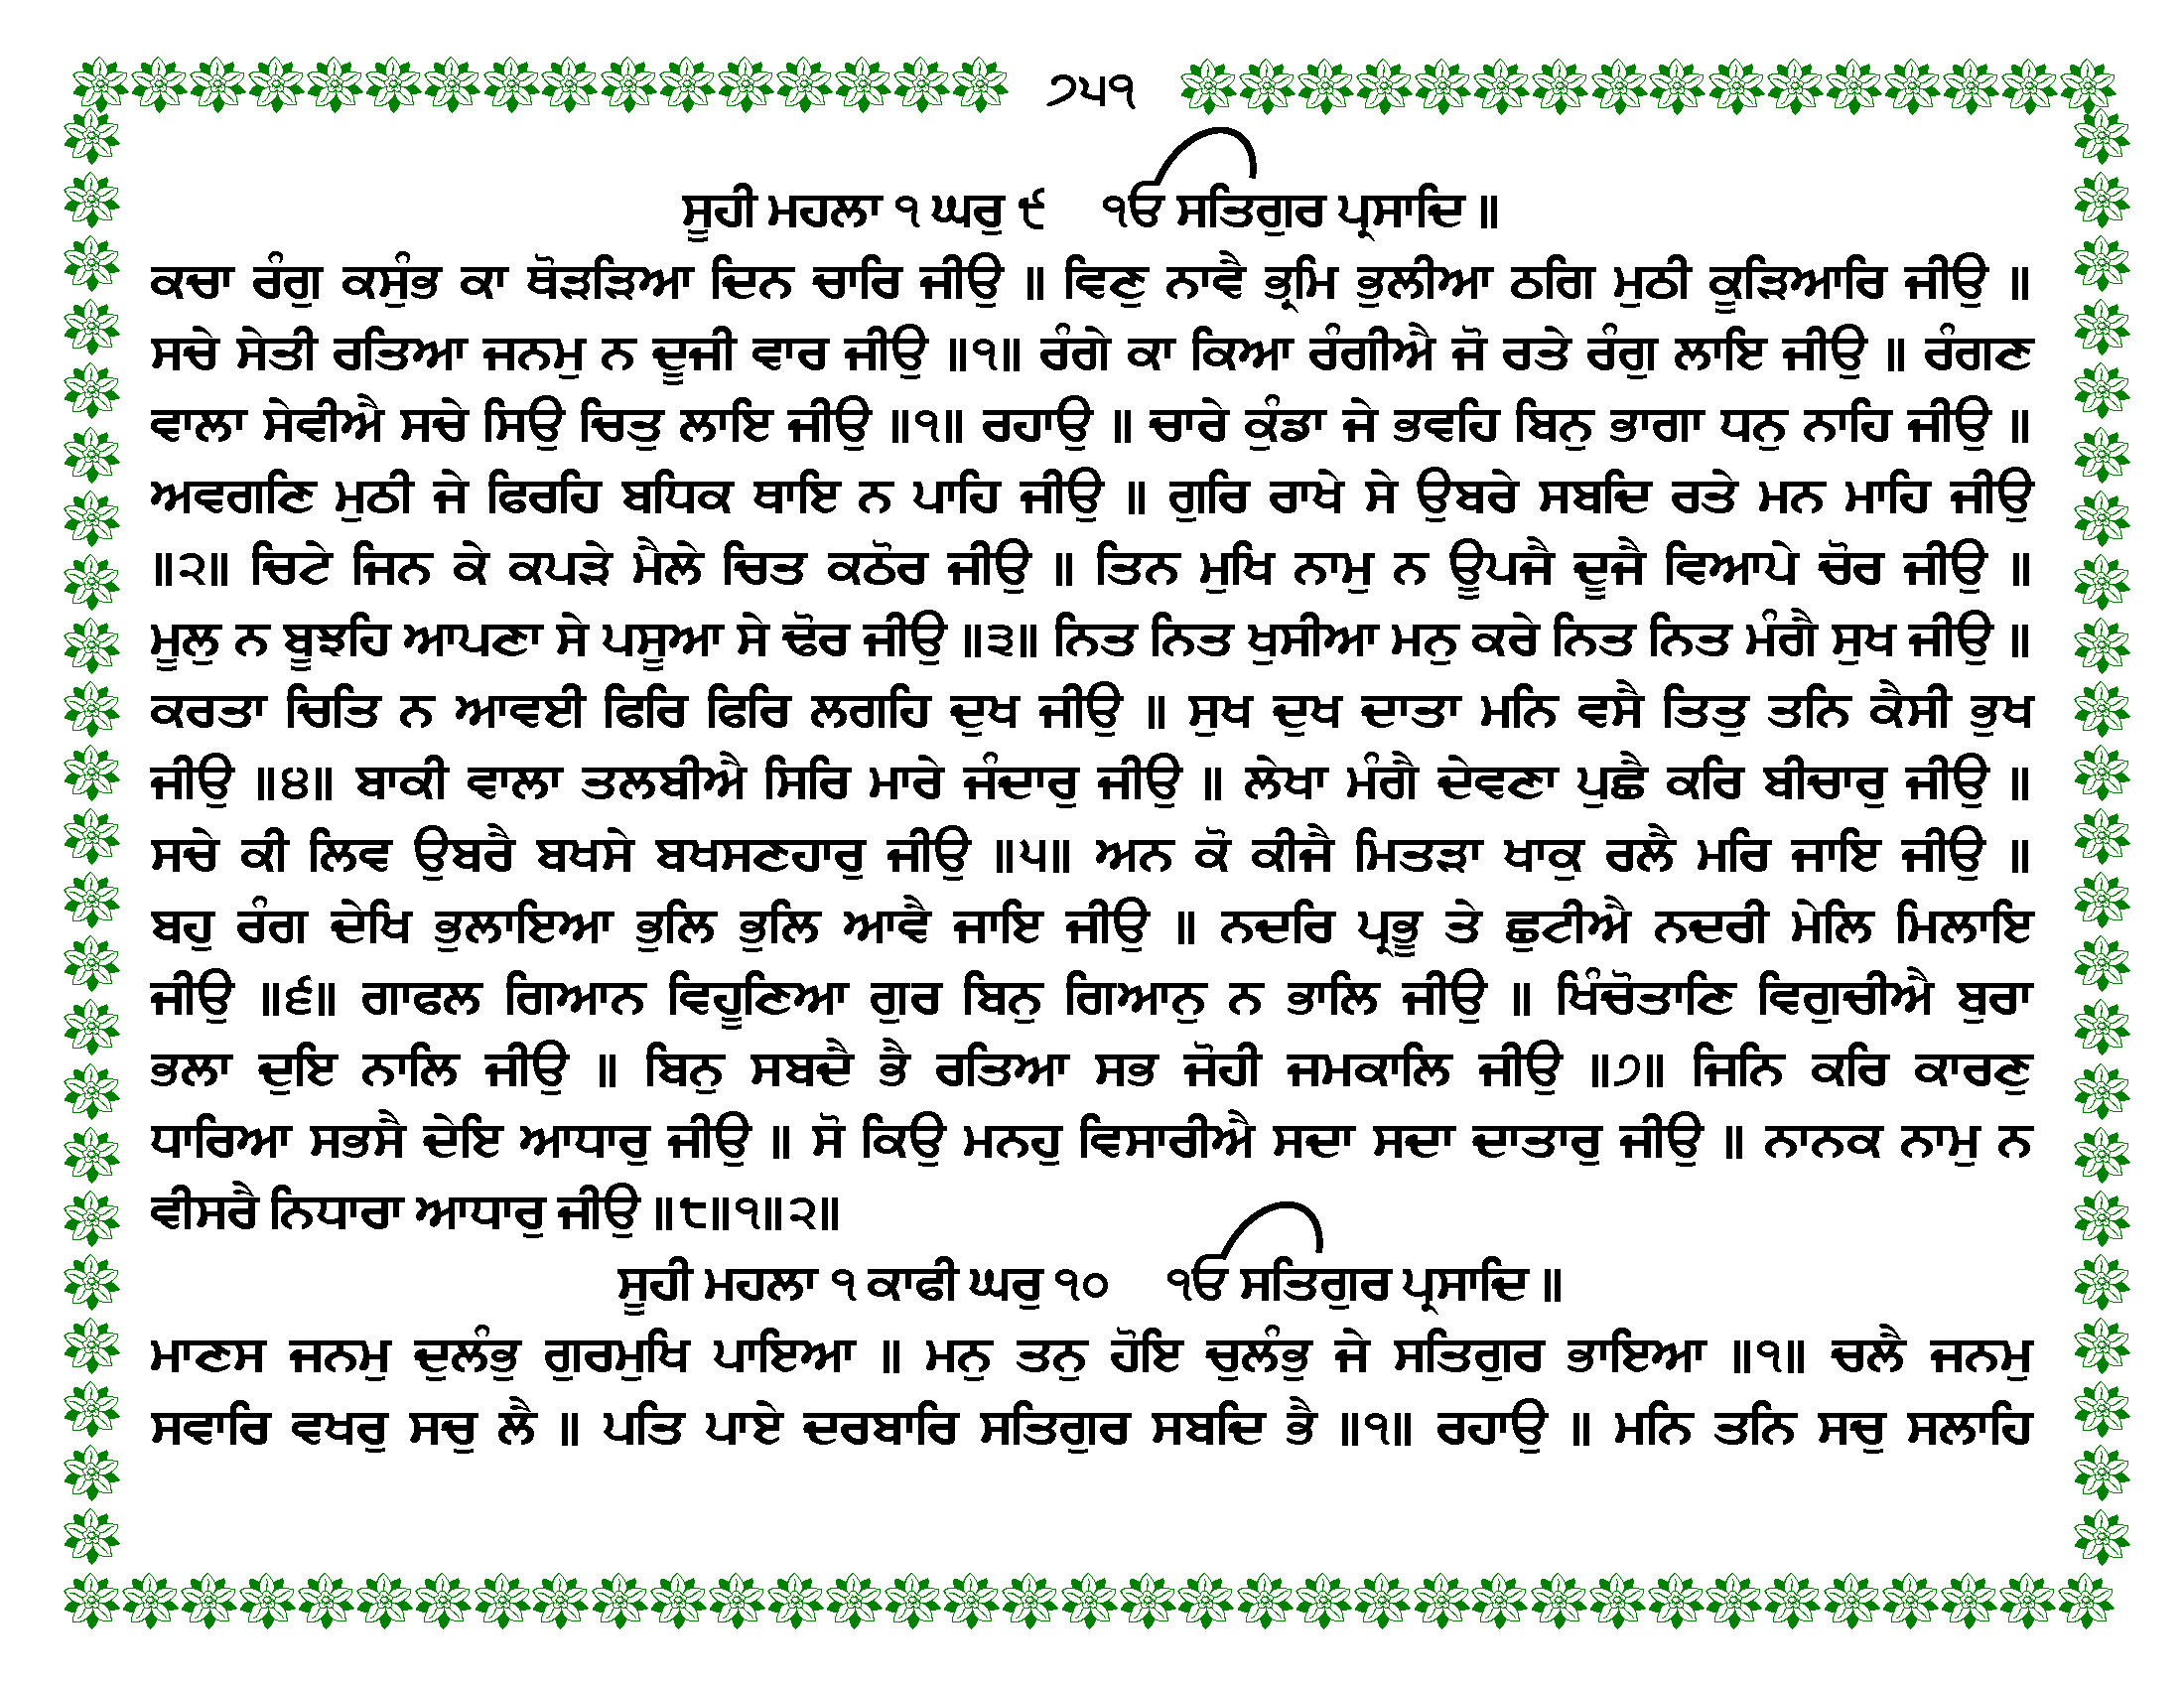 ੭੫੧
ਸੂਹੀ ਮਹਲਾ ੧ ਘਰੁ ੯ ੴ ਸਤਿਗੁਰ ਪ੍ਰਸਾਦਿ ॥
ਕਚਾ ਰੰਗੁ ਕਸੁੰਭ ਕਾ ਥੋੜੜਿਆ ਦਿਨ ਚਾਰਿ ਜੀਉ ॥ ਵਿਣੁ ਨਾਵੈ ਭ੍ਰਮਿ ਭੁਲੀਆ ਠਗਿ ਮੁਠੀ ਕੂੜਿਆਰਿ ਜੀਉ ॥
ਸਚੇ ਸੇਤੀ ਰਤਿਆ ਜਨਮੁ ਨ ਦੂਜੀ ਵਾਰ ਜੀਉ ॥੧॥ ਰੰਗੇ ਕਾ ਕਿਆ ਰੰਗੀਐ ਜੋ ਰਤੇ ਰੰਗੁ ਲਾਇ ਜੀਉ ॥ ਰੰਗਣ
ਵਾਲਾ ਸੇਵੀਐ ਸਚੇ ਸਿਉ ਚਿਤੁ ਲਾਇ ਜੀਉ ॥੧॥ ਰਹਾਉ ॥ ਚਾਰੇ ਕੁੰਡਾ ਜੇ ਭਵਹਿ ਬਿਨੁ ਭਾਗਾ ਧਨੁ ਨਾਹਿ ਜੀਉ ॥
ਅਵਗਣਿ ਮੁਠੀ ਜੇ ਫਿਰਹਿ ਬਧਿਕ ਥਾਇ ਨ ਪਾਹਿ ਜੀਉ ॥ ਗੁਰਿ ਰਾਖੇ ਸੇ ਉਬਰੇ ਸਬਦਿ ਰਤੇ ਮਨ ਮਾਹਿ ਜੀਉ
॥੨॥ ਚਿਟੇ ਜਿਨ ਕੇ ਕਪੜੇ ਮੈਲੇ ਚਿਤ ਕਠੋਰ ਜੀਉ ॥ ਤਿਨ ਮੁਖਿ ਨਾਮੁ ਨ ਊਪਜੈ ਦੂਜੈ ਵਿਆਪੇ ਚੋਰ ਜੀਉ ॥
ਮੂਲੁ ਨ ਬੂਝਹਿ ਆਪਣਾ ਸੇ ਪਸੂਆ ਸੇ ਢੋਰ ਜੀਉ ॥੩॥ ਨਿਤ ਨਿਤ ਖੁਸੀਆ ਮਨੁ ਕਰੇ ਨਿਤ ਨਿਤ ਮੰਗੈ ਸੁਖ ਜੀਉ ॥
ਕਰਤਾ ਚਿਤਿ ਨ ਆਵਈ ਫਿਰਿ ਫਿਰਿ ਲਗਹਿ ਦੁਖ ਜੀਉ ॥ ਸੁਖ ਦੁਖ ਦਾਤਾ ਮਨਿ ਵਸੈ ਤਿਤੁ ਤਨਿ ਕੈਸੀ ਭੁਖ
ਜੀਉ ॥੪॥ ਬਾਕੀ ਵਾਲਾ ਤਲਬੀਐ ਸਿਰਿ ਮਾਰੇ ਜੰਦਾਰੁ ਜੀਉ ॥ ਲੇਖਾ ਮੰਗੈ ਦੇਵਣਾ ਪੁਛੈ ਕਰਿ ਬੀਚਾਰੁ ਜੀਉ ॥
ਸਚੇ ਕੀ ਲਿਵ ਉਬਰੈ ਬਖਸੇ ਬਖਸਣਹਾਰੁ ਜੀਉ ॥੫॥ ਅਨ ਕੋ ਕੀਜੈ ਮਿਤੜਾ ਖਾਕੁ ਰਲੈ ਮਰਿ ਜਾਇ ਜੀਉ ॥
ਬਹੁ ਰੰਗ ਦੇਖਿ ਭੁਲਾਇਆ ਭੁਲਿ ਭੁਲਿ ਆਵੈ ਜਾਇ ਜੀਉ ॥ ਨਦਰਿ ਪ੍ਰਭੂ ਤੇ ਛੁਟੀਐ ਨਦਰੀ ਮੇਲਿ ਮਿਲਾਇ
ਜੀਉ ॥੬॥ ਗਾਫਲ ਗਿਆਨ ਵਿਹੂਣਿਆ ਗੁਰ ਬਿਨੁ ਗਿਆਨੁ ਨ ਭਾਲਿ ਜੀਉ ॥ ਖਿੰਚੋਤਾਣਿ ਵਿਗੁਚੀਐ ਬੁਰਾ
ਭਲਾ ਦੁਇ ਨਾਲਿ ਜੀਉ ॥ ਬਿਨੁ ਸਬਦੈ ਭੈ ਰਤਿਆ ਸਭ ਜੋਹੀ ਜਮਕਾਲਿ ਜੀਉ ॥੭॥ ਜਿਨਿ ਕਰਿ ਕਾਰਣੁ
ਧਾਰਿਆ ਸਭਸੈ ਦੇਇ ਆਧਾਰੁ ਜੀਉ ॥ ਸੋ ਕਿਉ ਮਨਹੁ ਵਿਸਾਰੀਐ ਸਦਾ ਸਦਾ ਦਾਤਾਰੁ ਜੀਉ ॥ ਨਾਨਕ ਨਾਮੁ ਨ
ਵੀਸਰੈ ਨਿਧਾਰਾ ਆਧਾਰੁ ਜੀਉ ॥੮॥੧॥੨॥
ਸੂਹੀ ਮਹਲਾ ੧ ਕਾਫੀ ਘਰੁ ੧੦ ੴ ਸਤਿਗੁਰ ਪ੍ਰਸਾਦਿ ॥
ਮਾਣਸ ਜਨਮੁ ਦੁਲੰਭੁ ਗੁਰਮੁਖਿ ਪਾਇਆ ॥ ਮਨੁ ਤਨੁ ਹੋਇ ਚੁਲੰਭੁ ਜੇ ਸਤਿਗੁਰ ਭਾਇਆ ॥੧॥ ਚਲੈ ਜਨਮੁ
ਸਵਾਰਿ ਵਖਰੁ ਸਚੁ ਲੈ ॥ ਪਤਿ ਪਾਏ ਦਰਬਾਰਿ ਸਤਿਗੁਰ ਸਬਦਿ ਭੈ ॥੧॥ ਰਹਾਉ ॥ ਮਨਿ ਤਨਿ ਸਚੁ ਸਲਾਹਿ